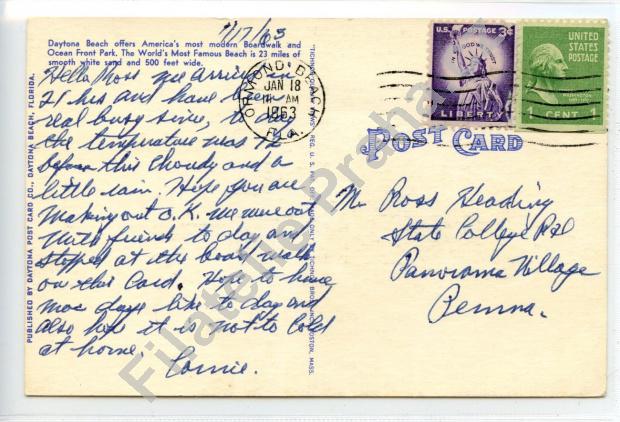 1/17/63
Daytona Beach offers America's most modern Boardwalk and
Ocean Front Park. The World's Most Famous Beach is 23 miles of
smooth white sand and 500 feet wide.
Hello Ross we arrived in
21 hrs and have been
real busy since, to day
the temperature was 72
before this cloudy and a
little rain. Hope you are
making out O.K. we were out
with friends to day and
stopped at the boat walk
on this Card. Hope to have
more days like to day and
also hope it is not to cold
at home.
Connie.
PUBLISHED BY DAYTONA POST CARD CO., DAYTONA BEACH, FLORIDA.
ORMOND BEACH
JAN 18
AM
1963
FLA.
U.S. POSTAGE 3¢
IN GOD WE TRUST
LIBERTY
UNITED
STATES
POSTAGE
WASHINGTON
1 CENT 1
POST CARD
Mr Ross Heading
State College Rd
Panorama Village
Penna.
Filatelie Praha